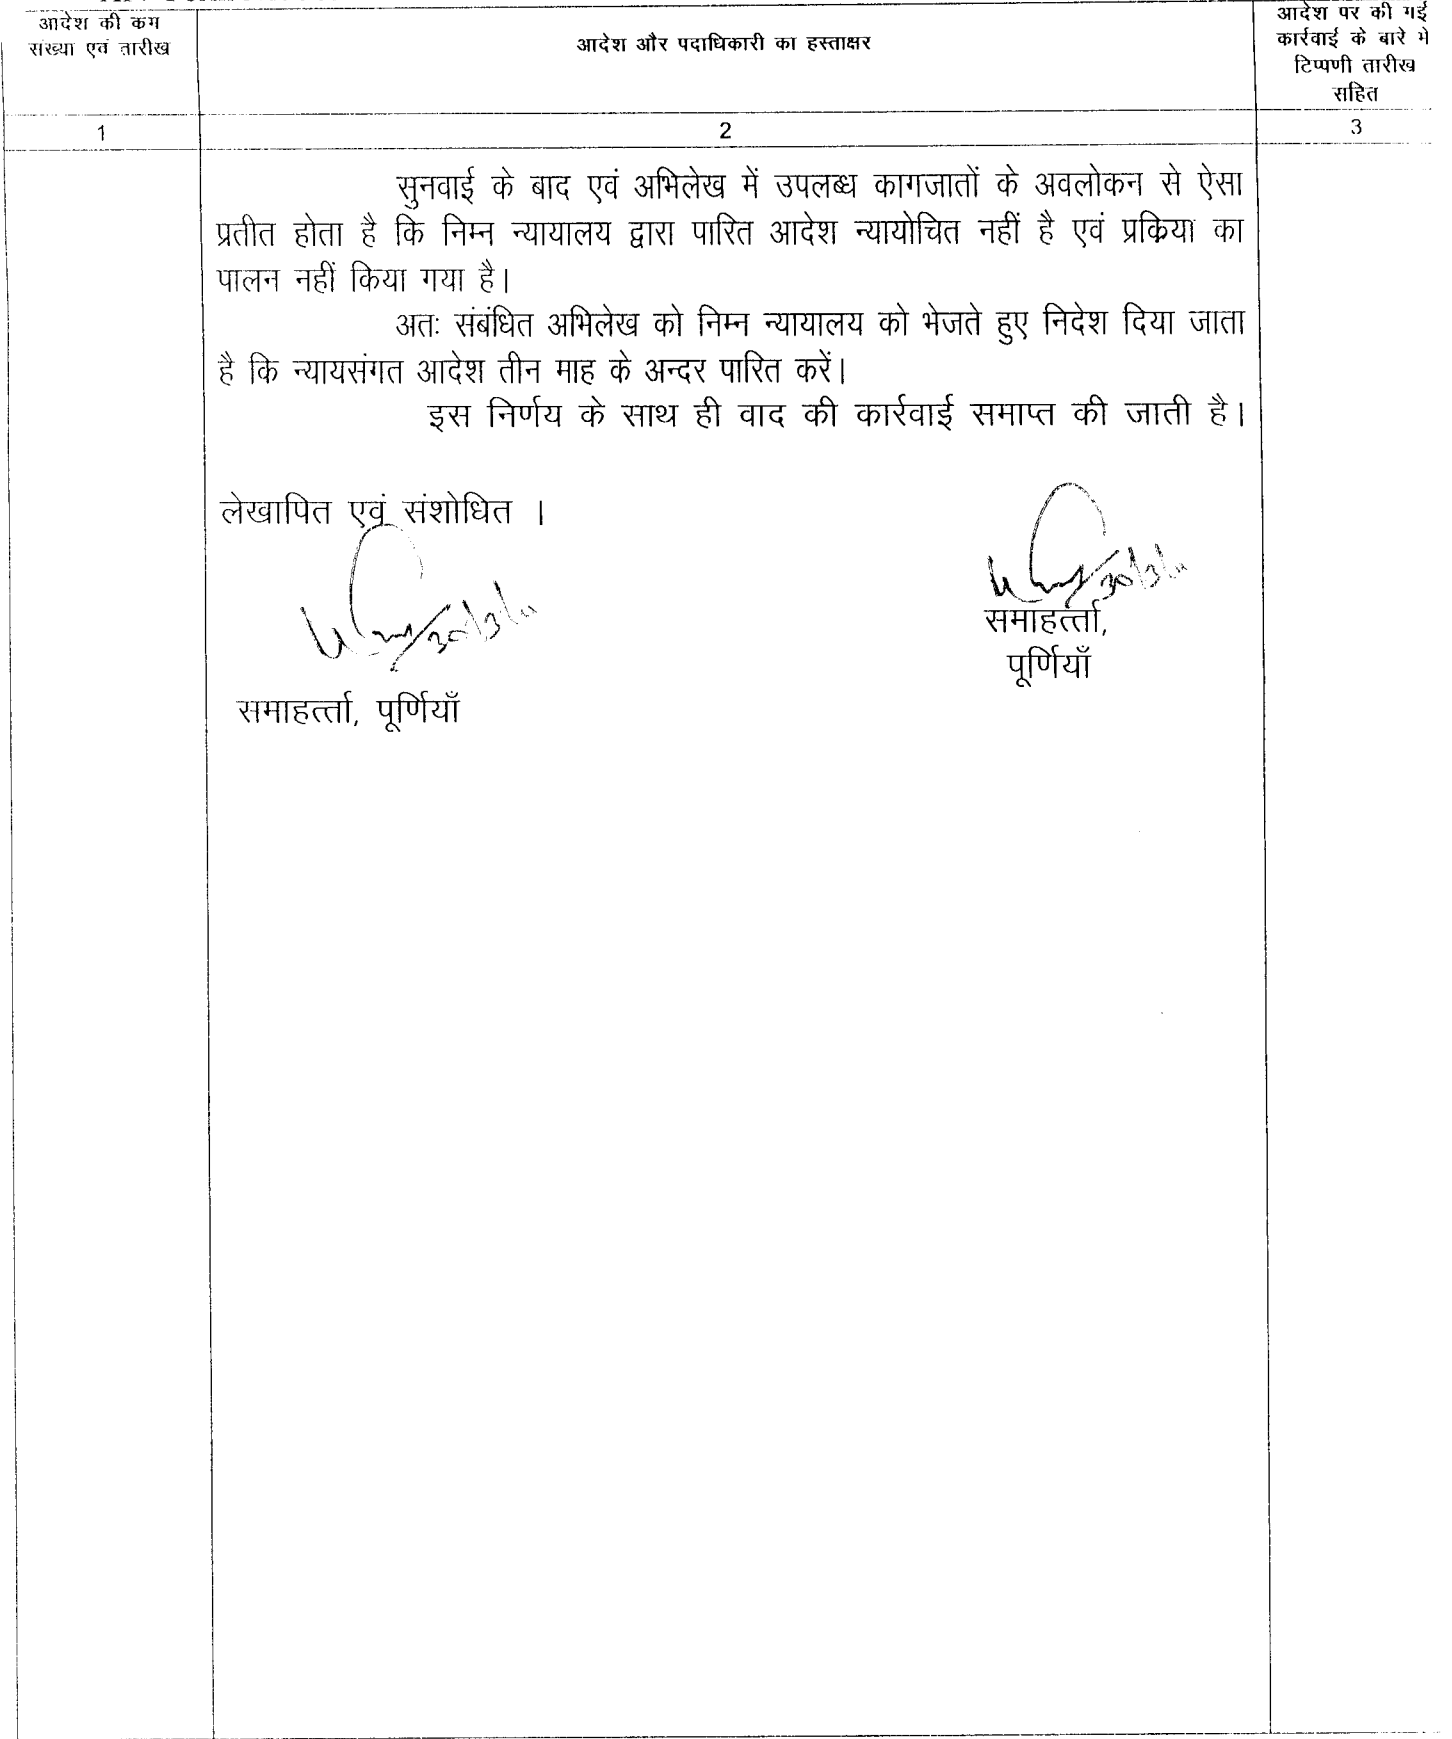 आदेश की कम
संख्या एवं तारीख
आदेश और पदाधिकारी का हस्ताक्षर
आदेश पर की गई
कार्रवाई के बारे में
टिप्पणी तारीख
सहित
1
2
3
सुनवाई के बाद एवं अभिलेख में उपलब्ध कागजातों के अवलोकन से ऐसा
प्रतीत होता है कि निम्न न्यायालय द्वारा पारित आदेश न्यायोचित नहीं है एवं प्रकिया का
पालन नहीं किया गया है।
अतः संबंधित अभिलेख को निम्न न्यायालय को भेजते हुए निदेश दिया जाता
है कि न्यायसंगत आदेश तीन माह के अन्दर पारित करें।
इस निर्णय के साथ ही वाद की कार्रवाई समाप्त की जाती है।
लेखापित एवं संशोधित ।
समाहर्त्ता,
पूर्णियाँ
समाहर्त्ता, पूर्णियाँ